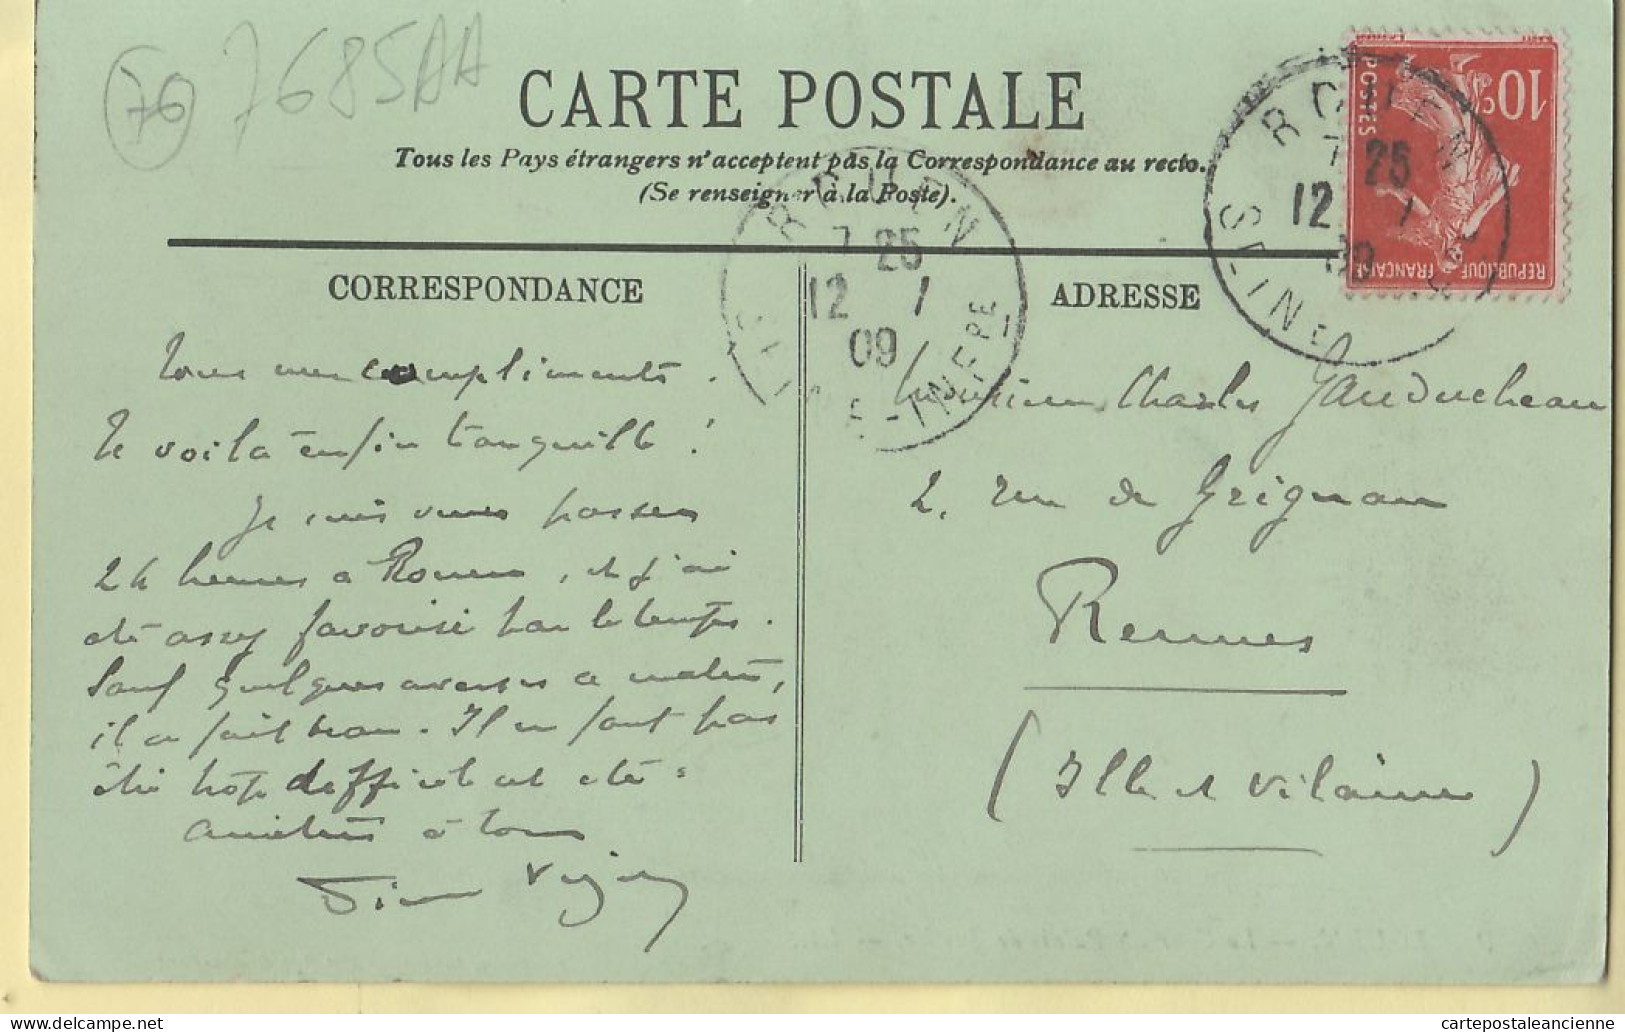 70 7685AA
CARTE POSTALE
Tous les Pays étrangers n'acceptent pas la Correspondance au recto.
(Se renseigner à la Poste).
CORRESPONDANCE
Tous mes compliments.
Te voilà enfin tranquille !
Je suis venu passer
24 heures à Rouen, et j'ai
été assez favorisé par le temps.
Sauf quelques averses ce matin,
il a fait beau. Il ne faut pas
être trop difficile cet été.
Amitiés à tous
ADRESSE
Monsieur Charles Gauducheau
2, rue de Grignan
Rennes
(Ille et Vilaine)
ROUEN
7 25
12 7
09
SEINE-INFRE
ROUEN
7 25
12 7
09
SEINE
10c
POSTES
REPUBLIQUE FRANÇAISE
cartepostaleancienne